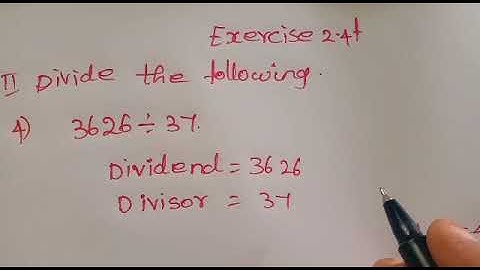 Exercise 2.4
II Divide the following.
4) 3626 ÷ 37.
Dividend = 3626
Divisor = 37